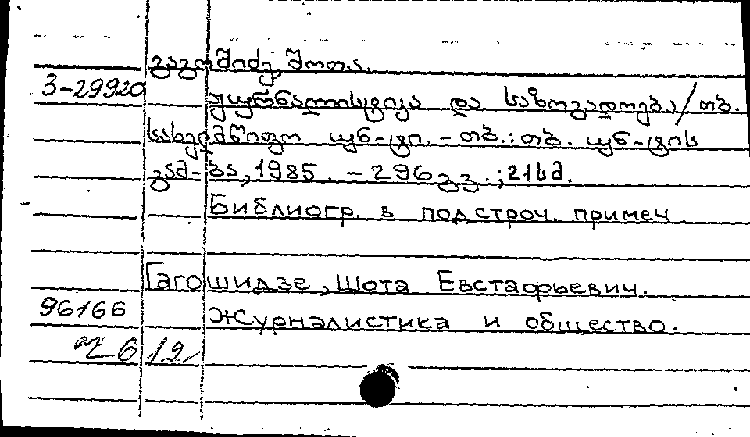 გაგოშიძე, შოთა.
3-29920
ჟურნალისტიკა და საზოგადოება / თბ.
სახელმწიფო უნ-ტი. - თბ.: თბ. უნ-ტის
გამ-ბა, 1985. - 296 გვ.; 21სმ.
Библиогр. в подстроч. примеч
Гагошидзе, Шота Евстафьевич.
96166
Журналистика и общество.